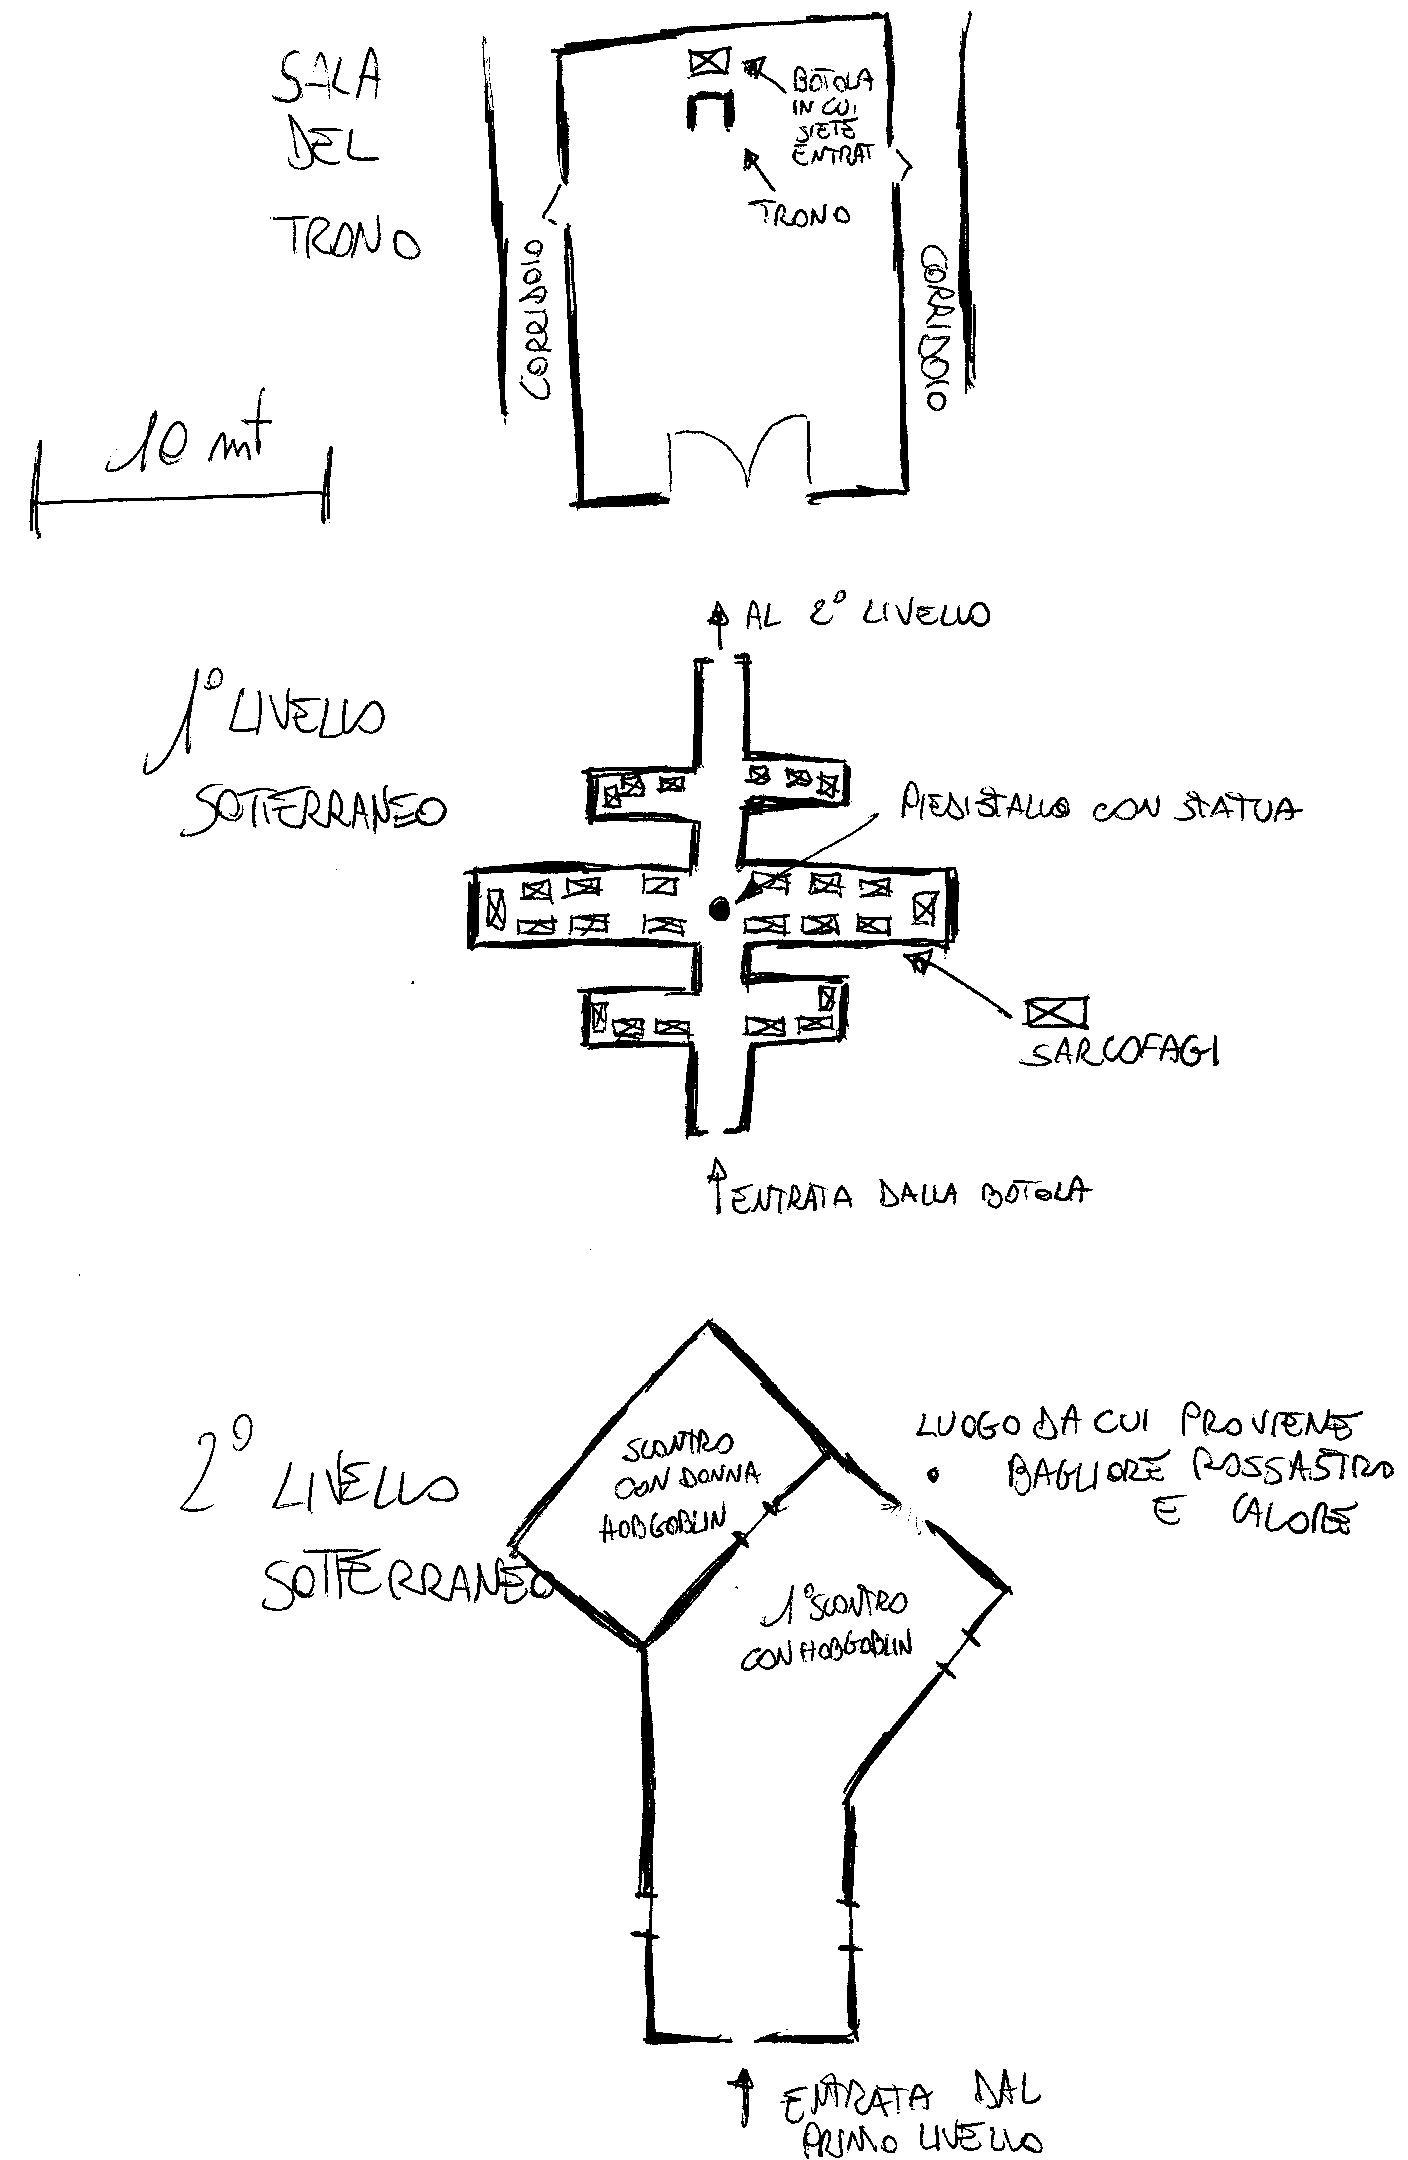 SALA
DEL
TRONO
BOTOLA
IN CUI
SIETE
ENTRAT
TRONO
CORRIDOIO
CORRIDOIO
10 mt
AL 2° LIVELLO
1° LIVELLO
SOTTERRANEO
PIEDISTALLO CON STATUA
SARCOFAGI
ENTRATA DALLA BOTOLA
2° LIVELLO
SOTTERRANEO
SCONTRO
CON DONNA
HOBGOBLIN
LUOGO DA CUI PROVIENE
BAGLIORE ROSSASTRO
E CALORE
1° SCONTRO
CON HOBGOBLIN
ENTRATA DAL
PRIMO LIVELLO